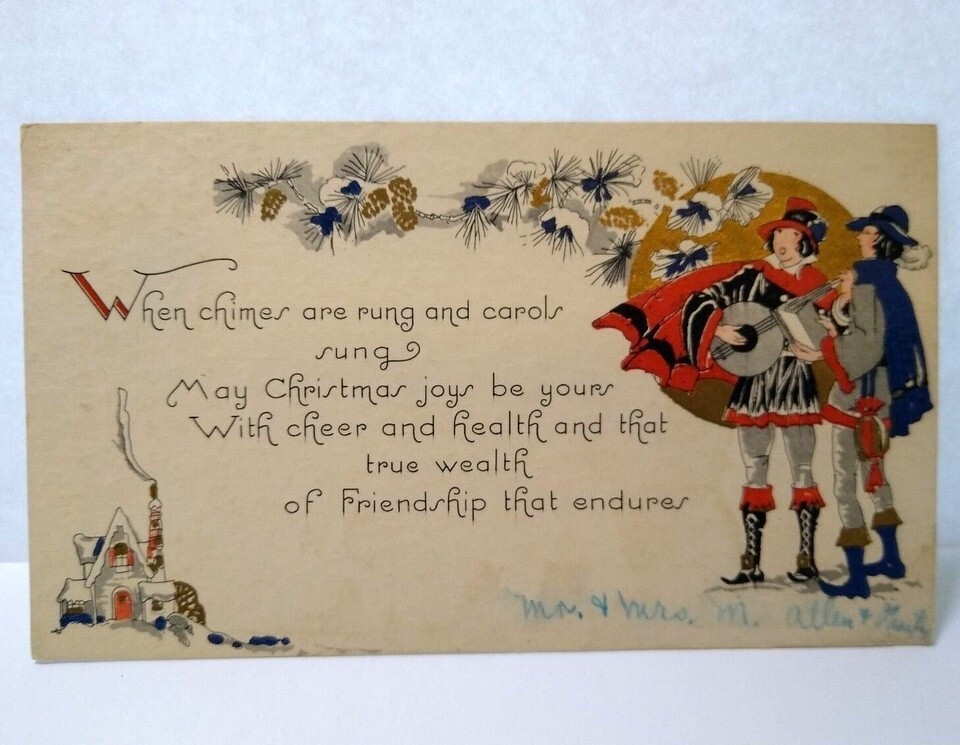 When chimes are rung and carols
sung
May Christmas joys be yours
With cheer and health and that
true wealth
of Friendship that endures
Mr. & Mrs. M. Allen &